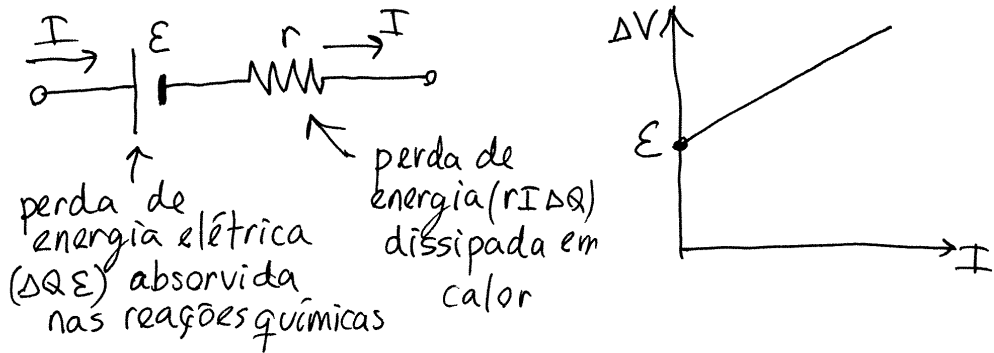 I
ε
r
I
perda de
energia elétrica
(ΔQε) absorvida
nas reações químicas
perda de
energia (rIΔQ)
dissipada em
calor
ΔV
ε
I